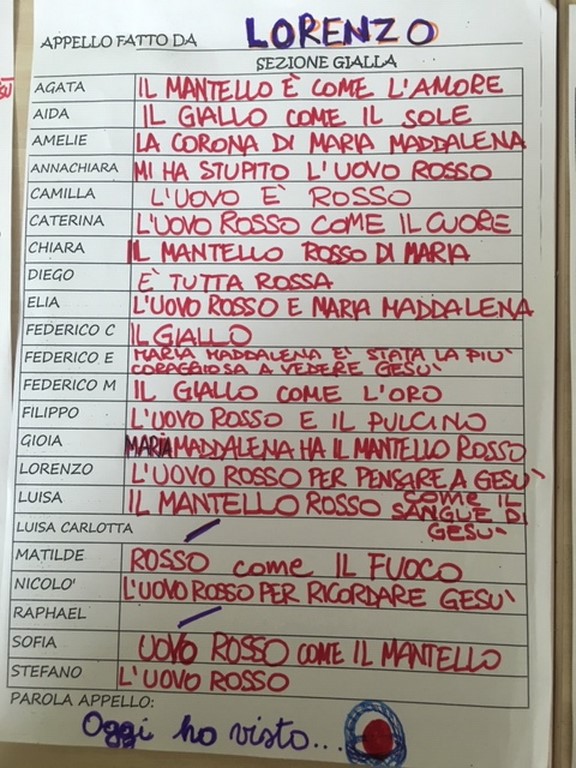 APPELLO FATTO DA LORENZO
SEZIONE GIALLA
AGATA IL MANTELLO È COME L'AMORE
AIDA IL GIALLO COME IL SOLE
AMELIE LA CORONA DI MARIA MADDALENA
ANNACHIARA MI HA STUPITO L'UOVO ROSSO
CAMILLA L'UOVO E' ROSSO
CATERINA L'UOVO ROSSO COME IL CUORE
CHIARA IL MANTELLO ROSSO DI MARIA
DIEGO E' TUTTA ROSSA
ELIA L'UOVO ROSSO E MARIA MADDALENA
FEDERICO C IL GIALLO
FEDERICO E MARIA MADDALENA E' STATA LA PIU'
CORAGGIOSA A VEDERE GESU'
FEDERICO M IL GIALLO COME L'ORO
FILIPPO L'UOVO ROSSO E IL PULCINO
GIOIA MARIA MADDALENA HA IL MANTELLO ROSSO
LORENZO L'UOVO ROSSO PER PENSARE A GESU'
LUISA IL MANTELLO ROSSO COME IL
SANGUE DI
GESU'
LUISA CARLOTTA /
MATILDE ROSSO come IL FUOCO
NICOLO' L'UOVO ROSSO PER RICORDARE GESU'
RAPHAEL /
SOFIA UOVO ROSSO COME IL MANTELLO
STEFANO L'UOVO ROSSO
PAROLA APPELLO:
Oggi ho visto...